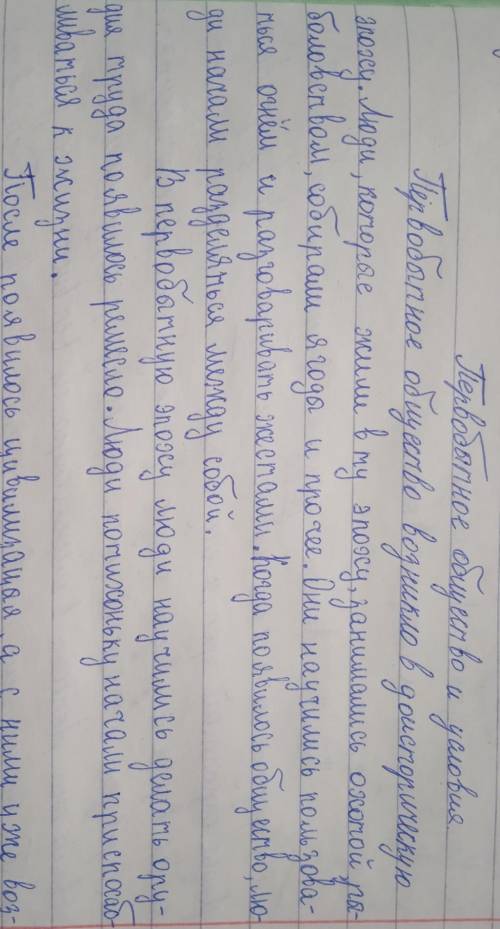 Первобытное общество и условия
Первобытное общество возникло в доисторическую
эпоху. Люди, которые жили в ту эпоху, занимались охотой, ры-
боловством, собирали ягоды и прочее. Они научились пользова-
ться огнём и разговаривать жестами. Когда появилось общество, лю-
ди начали разделяться между собой.
В первобытную эпоху люди научились делать ору-
дия труда появилось ремесло. Люди потихоньку начали приспосаб-
ливаться к жизни.
После появилось цивилизация, а с ними уже воз-